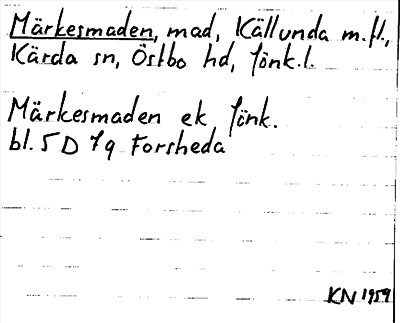 Märkesmaden, mad, Källunda m.fl.,
Kärda sn, Östbo hd, Jönk.l.
Märkesmaden ek Jönk.
bl. 5D 7q Forsheda
KN 1959